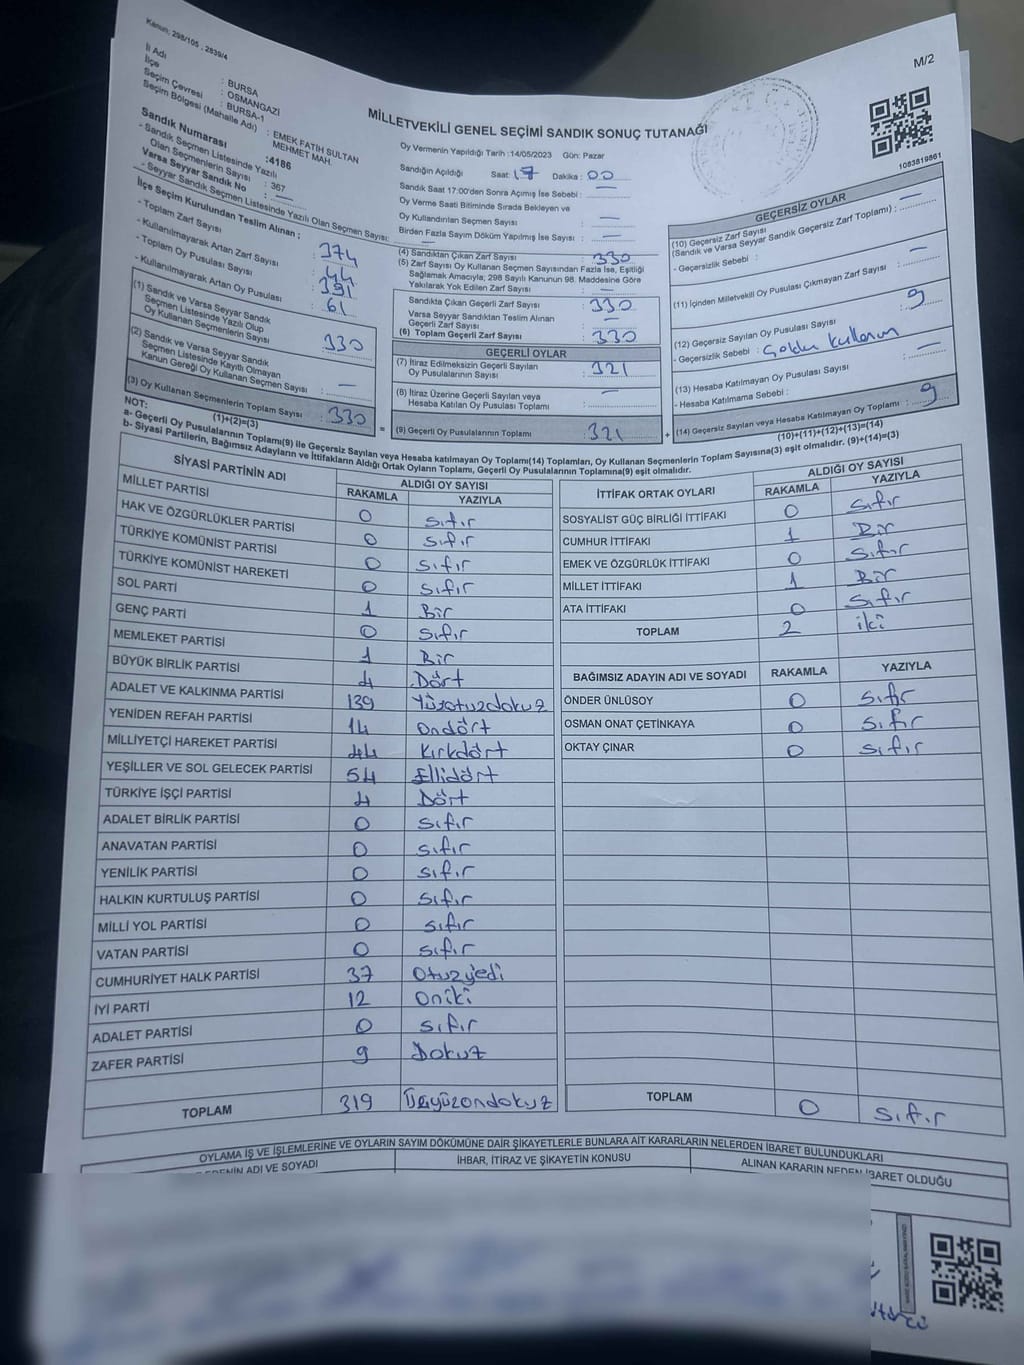 Kanun: 298/105 , 2839/4
M/2
İl Adı : BURSA
İlçe : OSMANGAZİ
Seçim Çevresi : BURSA-1
Seçim Bölgesi (Mahalle Adı) : EMEK FATİH SULTAN MEHMET MAH.
Sandık Numarası :4186
- Sandık Seçmen Listesinde Yazılı
Olan Seçmenlerin Sayısı : 367
Varsa Seyyar Sandık No : —
- Seyyar Sandık Seçmen Listesinde Yazılı Olan Seçmen Sayısı: —
İlçe Seçim Kurulundan Teslim Alınan ;
- Toplam Zarf Sayısı : 374
- Kullanılmayarak Artan Zarf Sayısı : 44
- Toplam Oy Pusulası Sayısı : 391
- Kullanılmayarak Artan Oy Pusulası : 61
(1) Sandık ve Varsa Seyyar Sandık
Seçmen Listesinde Yazılı Olup
Oy Kullanan Seçmenlerin Sayısı : 330
(2) Sandık ve Varsa Seyyar Sandık
Seçmen Listesinde Kayıtlı Olmayan
Kanun Gereği Oy Kullanan Seçmen Sayısı : —
(3) Oy Kullanan Seçmenlerin Toplam Sayısı : 330
(1)+(2)=(3)
MİLLETVEKİLİ GENEL SEÇİMİ SANDIK SONUÇ TUTANAĞI
Oy Vermenin Yapıldığı Tarih :14/05/2023 Gün: Pazar
Sandığın Açıldığı Saat: 17 Dakika : 00
Sandık Saat 17:00'den Sonra Açımış İse Sebebi : —
Oy Verme Saati Bitiminde Sırada Bekleyen ve
Oy Kullandırılan Seçmen Sayısı : —
Birden Fazla Sayım Döküm Yapılmış İse Sayısı : —
(4) Sandıktan Çıkan Zarf Sayısı : 330
(5) Zarf Sayısı Oy Kullanan Seçmen Sayısından Fazla İse, Eşitliği
Sağlamak Amacıyla; 298 Sayılı Kanunun 98. Maddesine Göre
Yakılarak Yok Edilen Zarf Sayısı : —
Sandıkta Çıkan Geçerli Zarf Sayısı : 330
Varsa Seyyar Sandıktan Teslim Alınan
Geçerli Zarf Sayısı : —
(6) Toplam Geçerli Zarf Sayısı : 330
GEÇERLİ OYLAR
(7) İtiraz Edilmeksizin Geçerli Sayılan
Oy Pusulalarının Sayısı : 321
(8) İtiraz Üzerine Geçerli Sayılan veya
Hesaba Katılan Oy Pusulası Toplamı : —
(9) Geçerli Oy Pusulalarının Toplamı : 321
1083819861
GEÇERSİZ OYLAR
(10) Geçersiz Zarf Sayısı
(Sandık ve Varsa Seyyar Sandık Geçersiz Zarf Toplamı) : —
- Geçersizlik Sebebi :
(11) İçinden Milletvekili Oy Pusulası Çıkmayan Zarf Sayısı : —
(12) Geçersiz Sayılan Oy Pusulası Sayısı : 9
- Geçersizlik Sebebi :
(13) Hesaba Katılmayan Oy Pusulası Sayısı : —
- Hesaba Katılmama Sebebi :
(14) Geçersiz Sayılan veya Hesaba Katılmayan Oy Toplamı : 9
(10)+(11)+(12)+(13)=(14)
NOT:
a- Geçerli Oy Pusulalarının Toplamı(9) ile Geçersiz Sayılan veya Hesaba katılmayan Oy Toplamı(14) Toplamları, Oy Kullanan Seçmenlerin Toplam Sayısına(3) eşit olmalıdır.
b- Siyasi Partilerin, Bağımsız Adayların ve İttifakların Aldığı Ortak Oyların Toplamı, Geçerli Oy Pusulalarının Toplamına(9) eşit olmalıdır. (9)+(14)=(3)
SİYASİ PARTİNİN ADI ALDIĞI OY SAYISI
RAKAMLA YAZIYLA
MİLLET PARTİSİ 0 sıfır
HAK VE ÖZGÜRLÜKLER PARTİSİ 0 sıfır
TÜRKİYE KOMÜNİST PARTİSİ 0 sıfır
TÜRKİYE KOMÜNİST HAREKETİ 0 sıfır
SOL PARTİ 1 Bir
GENÇ PARTİ 0 sıfır
MEMLEKET PARTİSİ 1 Bir
BÜYÜK BİRLİK PARTİSİ 4 Dört
ADALET VE KALKINMA PARTİSİ 139 Yüzotuzdokuz
YENİDEN REFAH PARTİSİ 14 Ondört
MİLLİYETÇİ HAREKET PARTİSİ 44 Kırkdört
YEŞİLLER VE SOL GELECEK PARTİSİ 54 Ellidört
TÜRKİYE İŞÇİ PARTİSİ 4 Dört
ADALET BİRLİK PARTİSİ 0 sıfır
ANAVATAN PARTİSİ 0 sıfır
YENİLİK PARTİSİ 0 sıfır
HALKIN KURTULUŞ PARTİSİ 0 sıfır
MİLLİ YOL PARTİSİ 0 sıfır
VATAN PARTİSİ 0 sıfır
CUMHURİYET HALK PARTİSİ 37 Otuzyedi
İYİ PARTİ 12 Oniki
ADALET PARTİSİ 0 sıfır
ZAFER PARTİSİ 9 Dokuz
TOPLAM 319 Üçyüzondokuz
İTTİFAK ORTAK OYLARI ALDIĞI OY SAYISI
RAKAMLA YAZIYLA
SOSYALİST GÜÇ BİRLİĞİ İTTİFAKI 0 sıfır
CUMHUR İTTİFAKI 1 Bir
EMEK VE ÖZGÜRLÜK İTTİFAKI 0 sıfır
MİLLET İTTİFAKI 1 Bir
ATA İTTİFAKI 0 sıfır
TOPLAM 2 iki
BAĞIMSIZ ADAYIN ADI VE SOYADI RAKAMLA YAZIYLA
ÖNDER ÜNLÜSOY 0 sıfır
OSMAN ONAT ÇETİNKAYA 0 sıfır
OKTAY ÇINAR 0 sıfır
TOPLAM 0 sıfır
OYLAMA İŞ VE İŞLEMLERİNE VE OYLARIN SAYIM DÖKÜMÜNE DAİR ŞİKAYETLERLE BUNLARA AİT KARARLARIN NELERDEN İBARET BULUNDUKLARI
ADI VE SOYADI İHBAR, İTİRAZ VE ŞİKAYETİN KONUSU ALINAN KARARIN NEDEN İBARET OLDUĞU